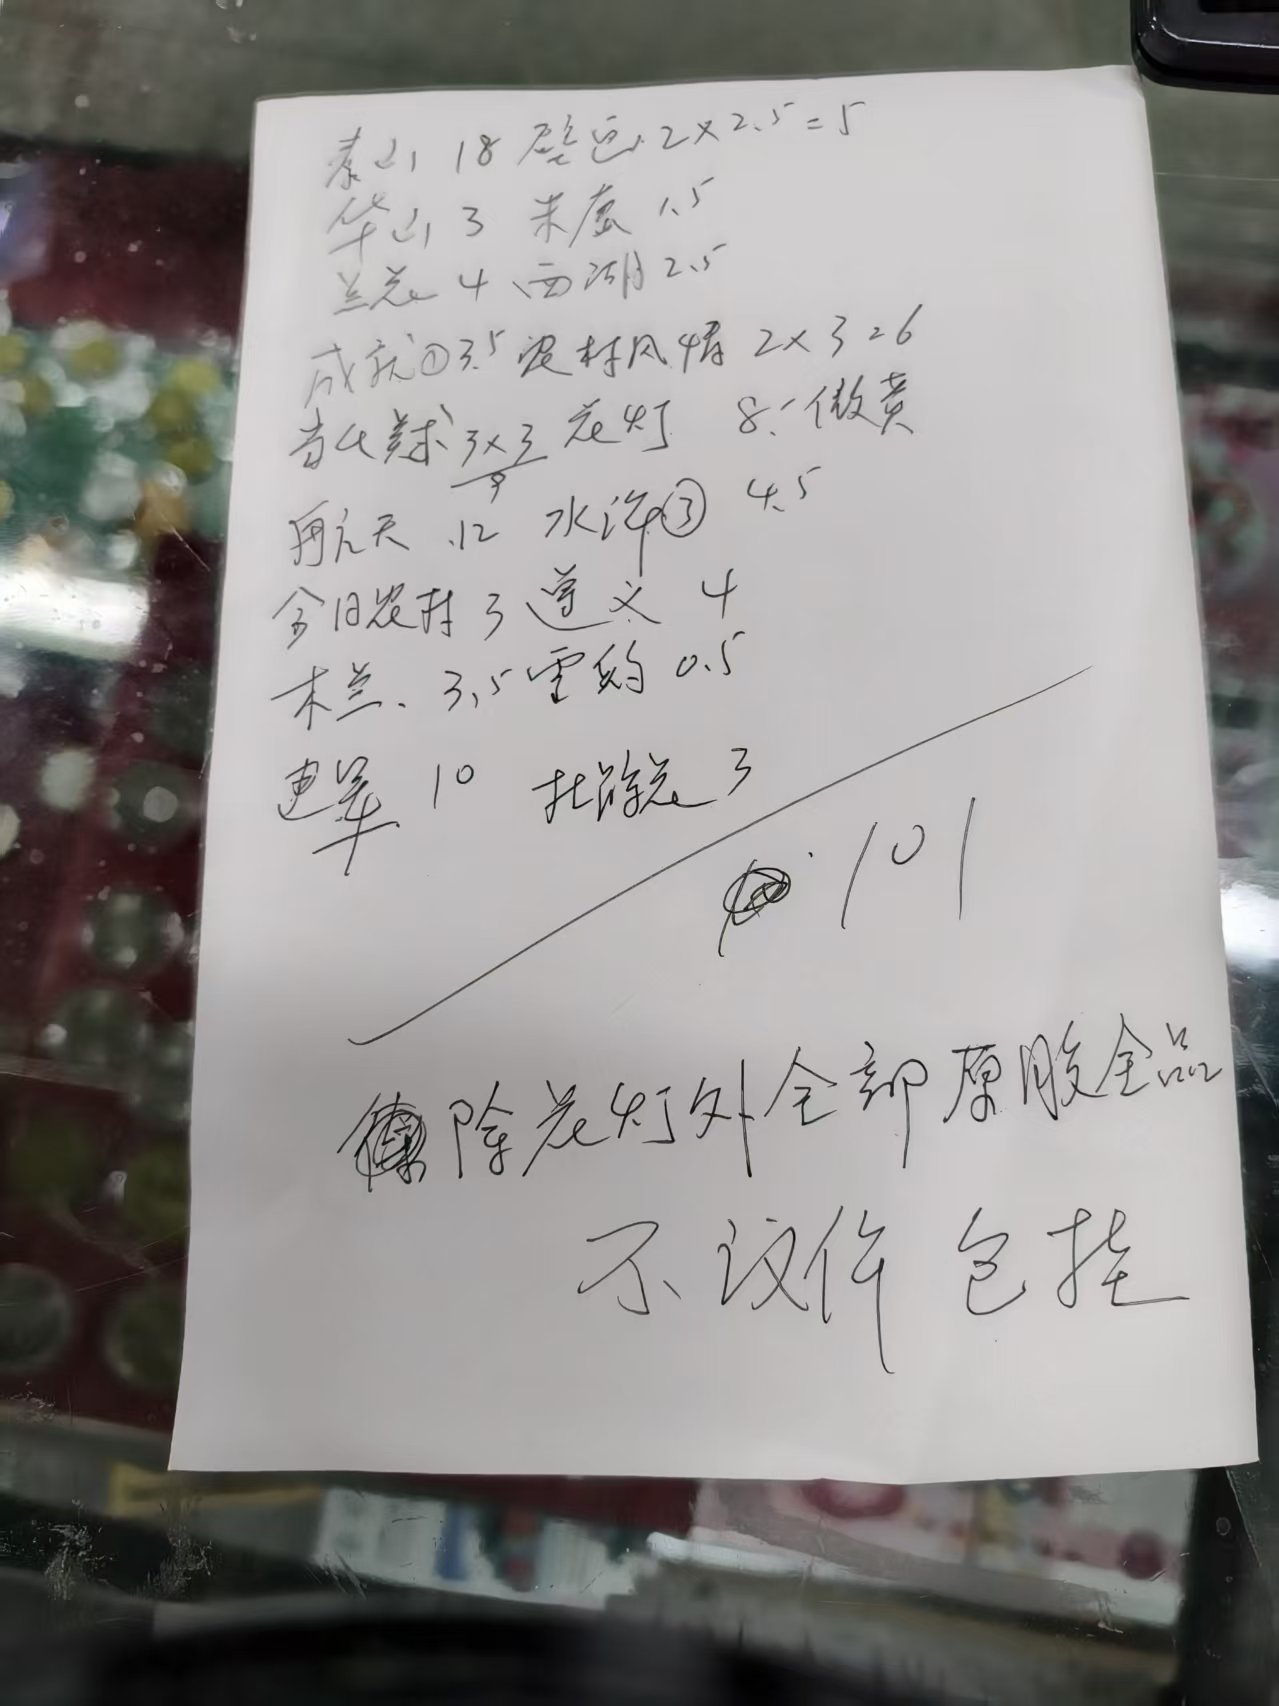 泰山 18 壁画 2×2.5=5
华山 3 朱鹮 1.5
兰花 4 西湖 2.5
成就① 3.5 农村风情 2×3=6
当代美术 3×3 花灯 8、微黄
9
航天 12 水浒③ 4.5
今日农村 3 遵义 4
木兰、3.5 雪豹 0.5
建军 10 杜鹃花 3
101
除花灯外全部原胶全品
不议价 包挂